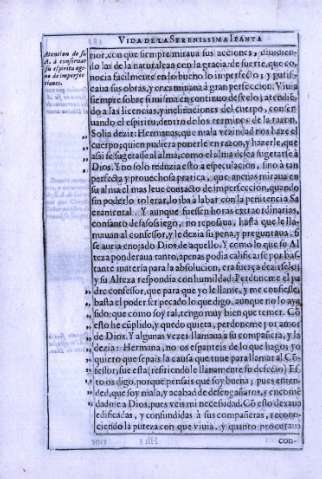 VIDA DE LA SERENISSIMA IFANTA
Atencion de su
A. a conseruar
su espiritu age
no de imperfec
ciones.
rior, con que siempre miraua sus acciones, diuidien-
do las de la naturaleza con la gracia de suerte, que co-
nocia facilmente en lo bueno lo imperfecto; y purifi-
caua sus obras, y encaminaua á gran perfeccion. Viuia
siempre sobre si misma en continuo desvelo; atendie
do a las licencias, y inclinaciones del cuerpo, conser-
uando el espiritu dentro de los terminos de la razon.
Solia dezir: Hermanas, que mala vezindad nos haze el
cuerpo; quien pudiera ponerle en razon, y hazerle, que
assi se sugetasse al alma; como el alma desea sugetarse á
Dios. Y no solo reduzia esto a especulacion, sino à tan
perfecta y prouechosa pratica, que apenas miraua en
su alma el mas leue contacto de imperfeccion, quando
sin poderlo tolerar, lo iba á labar con la penitencia Sa
cramental. Y aunque fuessen horas extraordinarias,
con santo desasosiego, no reposaua, hasta que le lla-
mauan al confessor, y le dezia su pena, y preguntaua, si
se auria enojado Dios de aquello. Y como lo que su Al
teza ponderaua tanto, apenas podia calificarse por bas-
tante materia para la absolucion, era fuerça dezirselo;
y su Alteza respondia con humildad: Perdoneme el pa
dre confessor, que para que yo le llame, y me confiesse,
basta el poder ser pecado lo que digo, aunque no lo aya
sido; que como soy tal, tengo muy bien que temer. Cõ
esto he cũplido, y quedo quieta, perdoneme por amor
de Dios. Y algunas vezes llamaua a su compañera, y la
dezia: Hermana, no os espanteis de lo que hago; yo
quiero que sepais la causa que tuue para llamar al Cõ-
fessor, fue esta (refiriendole llanamente su defecto) Es
to os digo, porque pensais que soy buena; pues enten-
ded, que soy mala, y acabad de desengañaros, y encome
dadme a Dios, pues veis mi necesidad. Cõ esto dexaua
edificadas, y confundidas á sus compañeras, recono-
ciendo la pureza con que viuia, y quanto procuraua
con-